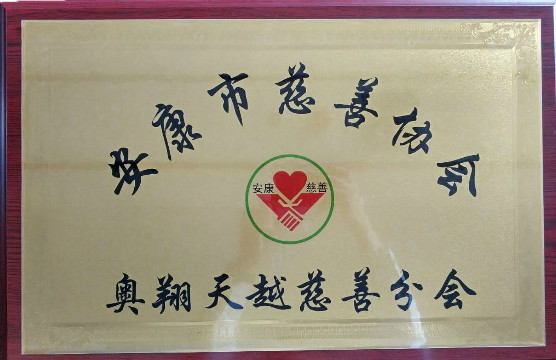 安康市慈善协会
安康 慈善
奥翔天越慈善分会